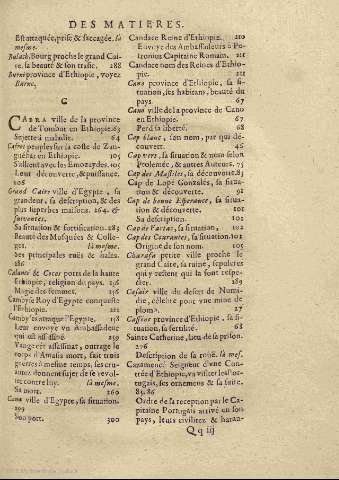 DES MATIERES.
Est attaquée, prise & saccagée. là
mesme.
Bulach, Bourg proche le grand Cai-
re. sa beauté & son trafic. 288
Burni province d'Ethiopie, voyez
Burne.
C
CABRA ville de la province
de Tombut en Ethiopie. 63
Sujete à maladie. 64
Cafres peuples sur la coste de Zan-
guebar en Ethiopie. 105
S'allient avec les Emozaydes. 105
Leur découverte, & puissance.
108
Grand Caire ville d'Egypte, sa
grandeur, sa description, & des
plus superbes maisons. 264. &
suivantes.
Sa situation & fortification. 283
Beauté des Mosquées & Colle-
ges. là mesme.
Des principales ruës & hales.
286
Calami & Creco ports de la haute
Ethiopie, religion du pays. 196
Magie des femmes. 196
Cambyse Roy d'Egypte conqueste
l'Ethiopie. 211
Cambyse attaque l'Egypte. 258
Leur envoye un Ambassadeur
qui est assassiné 259
Vange cét assassinat, outrage le
corps d'Amasis mort, fait trois
guerres à mesme temps, ses cru-
autez donnent sujet de se revol-
ter contre luy. là mesme.
Sa mort. 260
Cana ville d'Egypte, sa situation.
299
Son port. 300
Candace Reine d'Ethiopie. 210
Envoye des Ambassadeurs à Pe-
tronius Capitaine Romain. 211
Candace nom des Reines d'Ethio-
pie. 211
Cano province d'Ethiopie, sa si-
tuation, ses habitans, beauté du
pays. 67
Cano ville de la province de Cano
en Ethiopie. 67
Perd sa liberté. 68
Cap blanc, son nom, par qui dé-
couvert. 46
Cap vers, sa situation & nom selon
Ptolemée, & autres Auteurs. 75
Cap des Mastiles, sa découverte. 83
Cap de Lope Gonzales, sa situa-
tion & découverte. 92
Cap de bonne Esperance, sa situa-
tion & découverte. 101
Sa description. 102
Cap de l'artat, sa situation. 101
Cap des Courantes, sa situation. 102
Origine de son nom. 105
Charafa petite ville proche le
grand Caire, sa ruine, sepulcres
qui y restent qui la font respe-
cter. 289
Casair ville du desert de Numi-
die, celebre pour une mine de
plom. 27
Cassene province d'Ethiopie, sa
situation, sa fertilité. 68
Sainte Catherine, lieu de sa prison.
276
Description de sa rouë. là mes.
Caramence Seigneur d'une Con-
trée d'Ethiopie, va visiter les Por-
tugais, ses ornemens & sa suite.
85. 86
Ordre de la reception par le Ca-
pitaine Portugais arrivé en son
pays, leurs civilitez & haran-
Qq iij